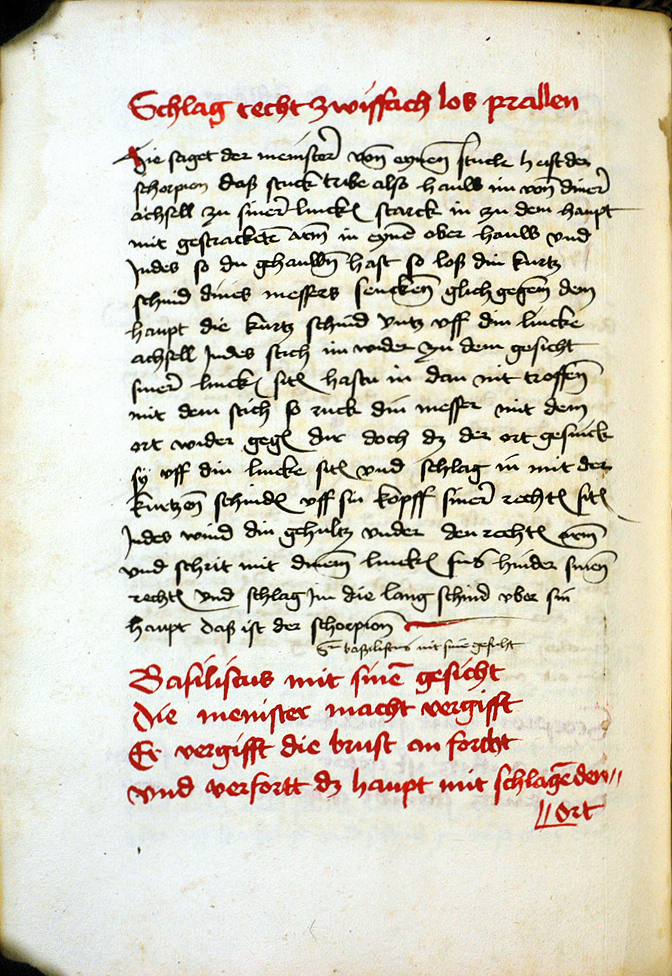 Schlag recht zwiffach los prallen
Hie saget der menister vonn eynem stuck heist der
schorpion daß stuck tribe also hauw im von diner
achsell zu siner linck starck in zu dem haupt
mit gestrackete arm in eyne ober hauw vnd
Indes so du gehauwn hast so loß din kurtz
schnid dines messers sencken glich gegem dem
haupt die kurtz schnid vntz vff din lincke
achsell Indes stich im wider zu dem gesicht
siner linck sit hastu in dan nit troffen
mit dem stich so ruck din messer mit dem
ort wider geg dir doch dz der ort gesinck
sy vff din lincke sit vnd schlag in mit der
kurtzen schnid vff sin kopff siner recht sit
Indes wind din gehultz vnder den recht arm
vnd schrit mit dinem linck fuß hinder sinen
recht vnd schlag Im die lang schnid vber sin
haupt daß ist der schorpion
basiliscus mit sine gesicht
Basiliscus mit sine gesicht
Die menister macht vergifft
Er vergifft die brust on forcht
vnd verfortt dz haupt mit schlageden //
// Ort